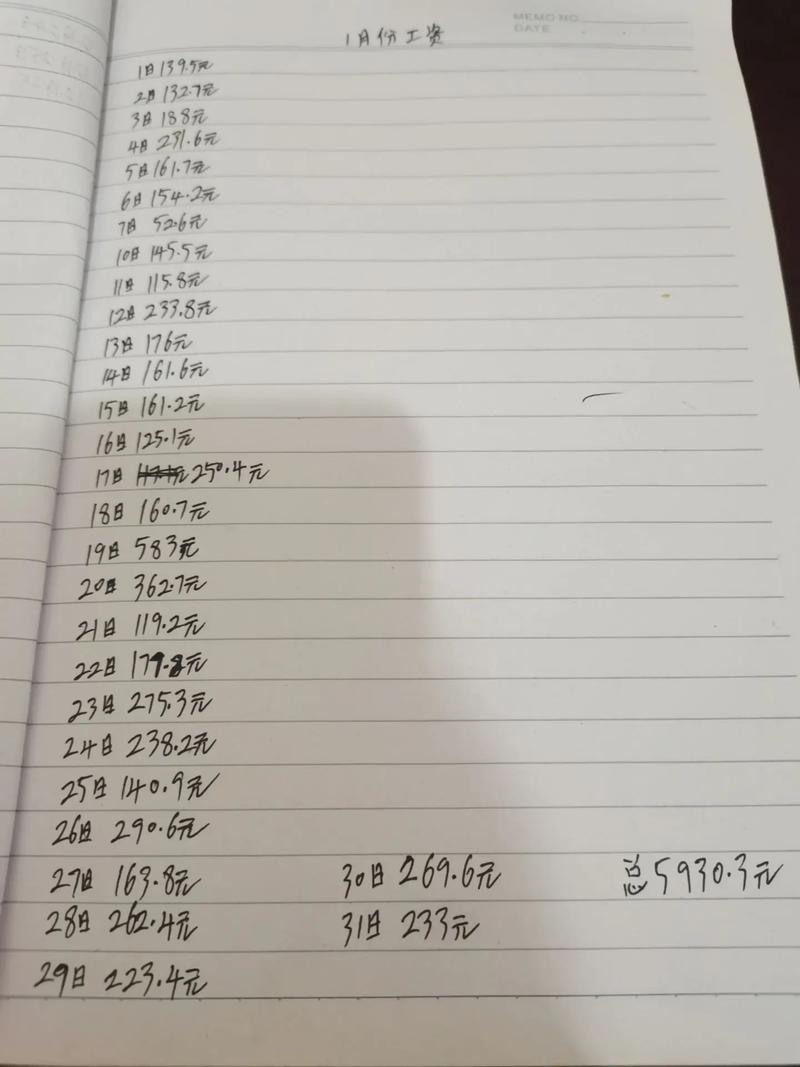 MEMO NO.
DATE
1月份工资
1日139.5元
2日132.7元
3日188元
4日231.6元
5日161.7元
6日154.2元
7日 52.6元
10日145.5元
11日115.8元
12日233.8元
13日176元
14日161.6元
15日161.2元
16日125.1元
17日 250.4元
18日160.7元
19日583元
20日362.7元
21日119.2元
22日179.8元
23日275.3元
24日238.2元
25日140.9元
26日290.6元
27日163.8元 30日269.6元 总5930.3元
28日262.4元 31日 233元
29日 223.4元